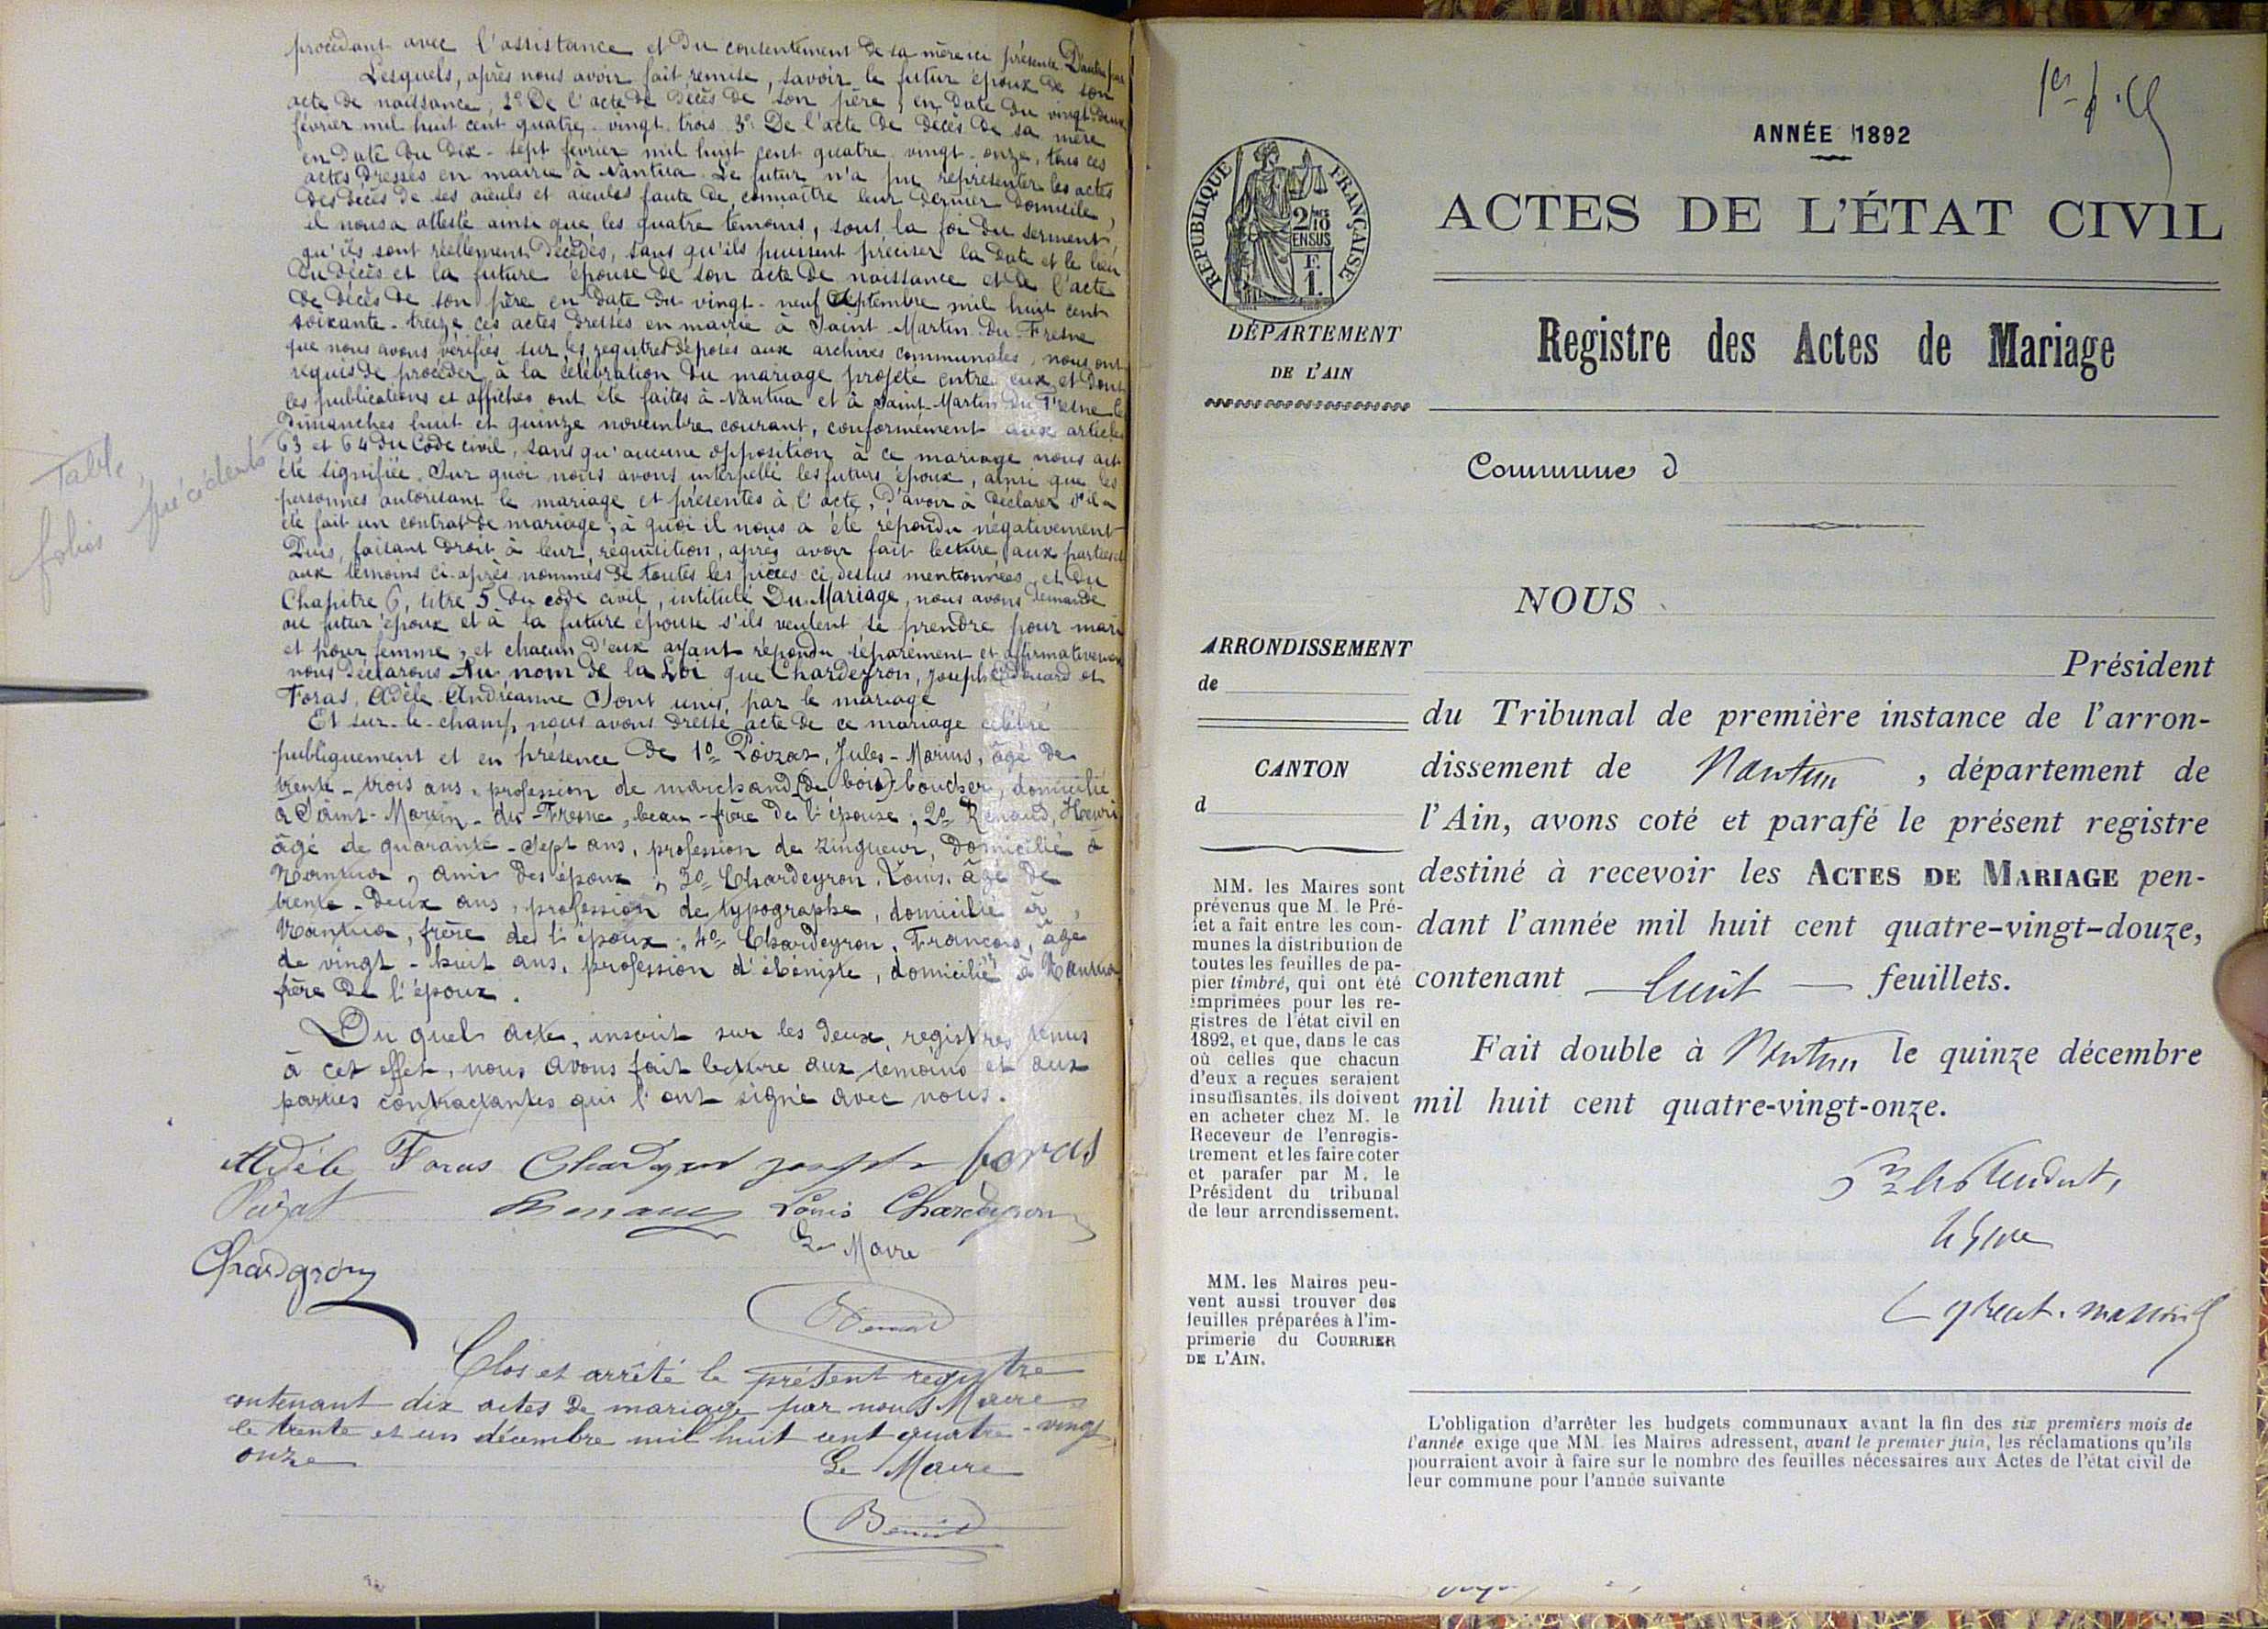 procédant avec l'assistance et du consentement de sa mère ici présente D'autre part
Lesquels, après nous avoir fait remise, savoir le futur époux de son
acte de naissance, 2° De l'acte de décès de son père, en date du vingt-deux
février mil huit cent quatre-vingt-trois 3° De l'acte de décès de sa mère
en date du dix-sept février mil huit cent quatre-vingt-onze, tous ces
actes dressés en mairie à Nantua. Le futur n'a pu représenter les actes
des décès de ses aïeuls et aïeules faute de connaître leur dernier domicile,
il nous a attesté ainsi que les quatre témoins, sous la foi du serment,
qu'ils sont réellement décédés, sans qu'ils puissent préciser la date et le lieu
du décès et la future épouse de son acte de naissance et de l'acte
de décès de son père en date du vingt-neuf septembre mil huit cent
soixante-treize ces actes dressés en mairie à Saint-Martin-du-Fresne
que nous avons vérifiés sur les registres déposés aux archives communales, nous ont
requis de procéder à la célébration du mariage projeté entre eux et dont
les publications et affiches ont été faites à Nantua et à Saint-Martin-du-Fresne les
dimanches huit et quinze novembre courant, conformément aux articles
63 et 64 du Code civil, sans qu'aucune opposition à ce mariage nous ait
été signifiée. Sur quoi nous avons interpellé les futurs époux, ainsi que les
personnes autorisant le mariage et présentes à l'acte, d'avoir à déclarer s'il a
été fait un contrat de mariage, à quoi il nous a été répondu négativement
Puis, faisant droit à leur réquisition, après avoir fait lecture aux parties et
aux témoins ci-après nommés de toutes les pièces ci-dessus mentionnées et du
Chapitre 6, titre 5 du code civil, intitulé Du Mariage, nous avons demandé
au futur époux et à la future épouse s'ils veulent se prendre pour mari
et pour femme, et chacun d'eux ayant répondu séparément et affirmativement
nous déclarons Au nom de la Loi que Chardeyron, Joseph Edouard et
Foras, Adèle Andréanne sont unis par le mariage
Et sur-le-champ, nous avons dressé acte de ce mariage célébré
publiquement et en présence de 1° Poizat, Jules-Marius, âgé de
trente-trois ans, profession de marchand (de bois) boucher, domicilié
à Saint-Martin-du-Fresne, beau-frère de l'épouse, 2° Renaud, Henri
âgé de quarante-sept ans, profession de zingueur, domicilié à
Nantua, ami des époux, 3° Chardeyron, Louis, âgé de
trente-deux ans, profession de typographe, domicilié à
Nantua, frère de l'époux, 4° Chardeyron, François, âgé
de vingt-huit ans, profession d'ébéniste, domicilié à Nantua
frère de l'époux.
Du quel acte, inscrit sur les deux registres tenus
à cet effet, nous avons fait lecture aux témoins et aux
parties contractantes qui l'ont signé avec nous.
Adèle Foras Chardeyron joseph foras
Poizat Renaud Louis Chardeyron
Le Maire
Chardeyron
Benoit
Clos et arrêté le présent registre
contenant dix actes de mariage par nous Maire
le trente et un décembre mil huit cent quatre-vingt
onze
Le Maire
Benoit
Table
folios précédents
ANNÉE 1892
ACTES DE L'ÉTAT CIVIL
RÉPUBLIQUE FRANÇAISE
2/10
EN SUS
F.
1.
DÉPARTEMENT
DE L'AIN
Registre des Actes de Mariage
Commune d
NOUS
ARRONDISSEMENT
de
CANTON
d
Président
du Tribunal de première instance de l'arron-
dissement de Nantua, département de
l'Ain, avons coté et parafé le présent registre
destiné à recevoir les ACTES DE MARIAGE pen-
dant l'année mil huit cent quatre-vingt-douze,
contenant huit feuillets.
Fait double à Nantua le quinze décembre
mil huit cent quatre-vingt-onze.
MM. les Maires sont
prévenus que M. le Pré-
fet a fait entre les com-
munes la distribution de
toutes les feuilles de pa-
pier timbré, qui ont été
imprimées pour les re-
gistres de l'état civil en
1892, et que, dans le cas
où celles que chacun
d'eux a reçues seraient
insuffisantes, ils doivent
en acheter chez M. le
Receveur de l'enregis-
trement et les faire coter
et parafer par M. le
Président du tribunal
de leur arrondissement.
MM. les Maires peu-
vent aussi trouver des
feuilles préparées à l'im-
primerie du COURRIER
DE L'AIN.
L'obligation d'arrêter les budgets communaux avant la fin des six premiers mois de
l'année exige que MM. les Maires adressent, avant le premier juin, les réclamations qu'ils
pourraient avoir à faire sur le nombre des feuilles nécessaires aux Actes de l'état civil de
leur commune pour l'année suivante